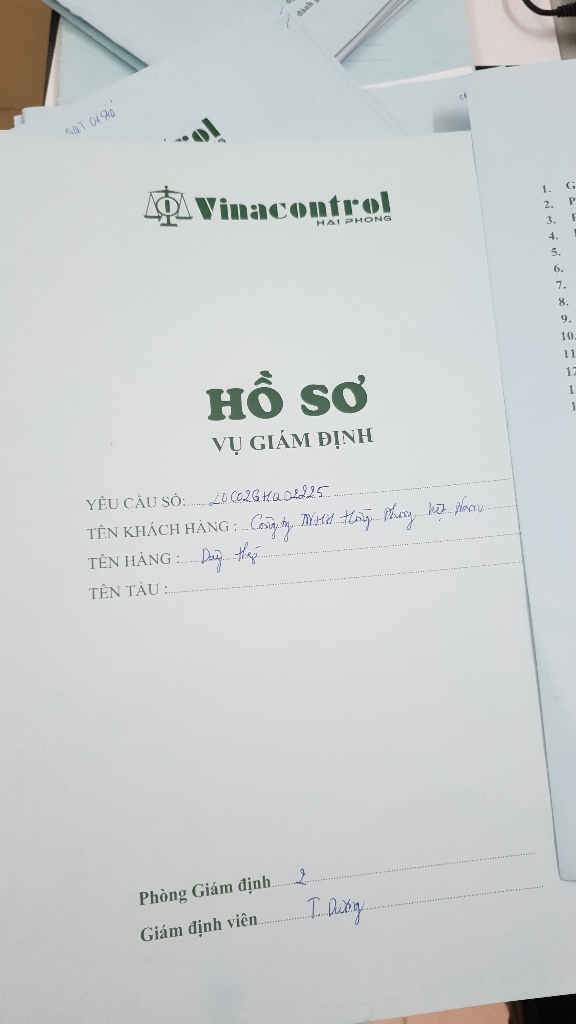 Vinacontrol
HAI PHONG
HỒ SƠ
VỤ GIÁM ĐỊNH
YÊU CẦU SỐ:
TÊN KHÁCH HÀNG : Công ty TNHH Hồng Phong Việt Nam
TÊN HÀNG : Dây thép
TÊN TÀU :
Phòng Giám định 2
Giám định viên T. Dương
1. G
2. P
3.
4.
5.
6.
7.
8.
9.
10.
11
12